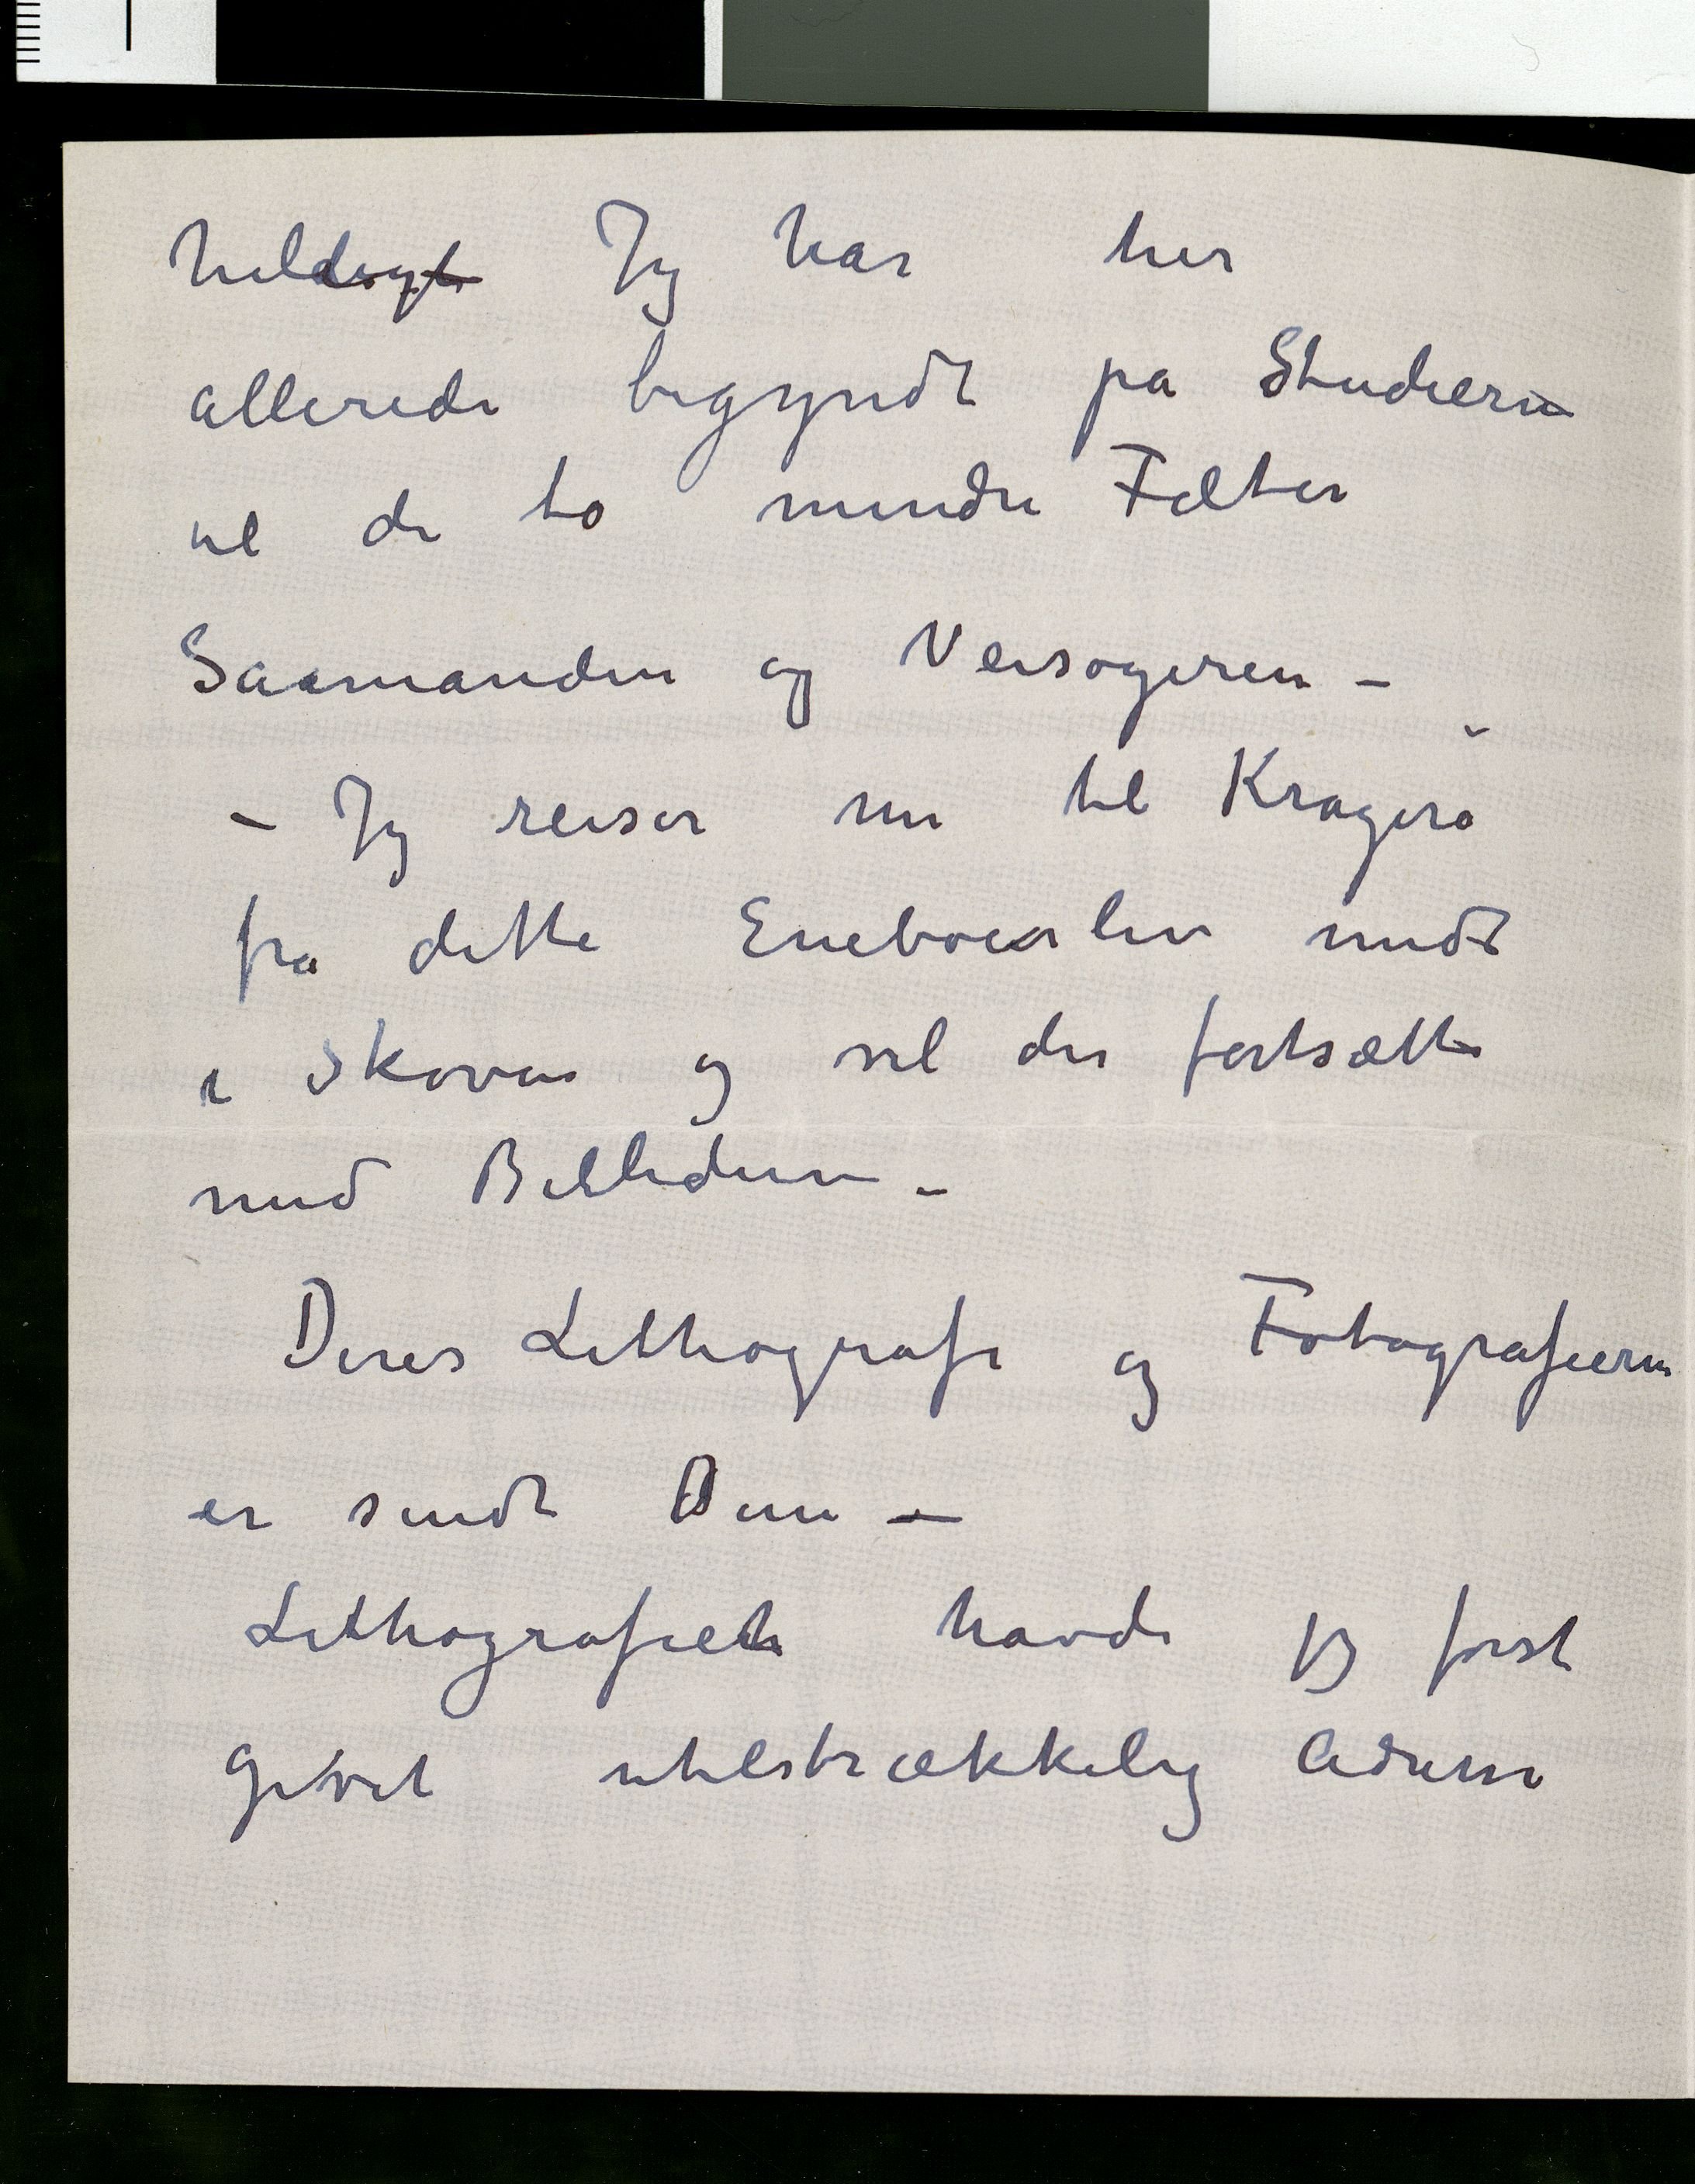 heldigt Jeg har her
allerede begyndt på Studierne
til de to mindre Felter
Saamanden og Veisøgeren –
– Jeg reiser nu til Kragerø
fra dette Eneboerliv midt
i Skoven og vil der fortsætte
med Billederne –
Deres Lithografi og Fotografierne
er sendt Dem –
Lithografiet havde jeg først
givet utilstrækkelig Adresse